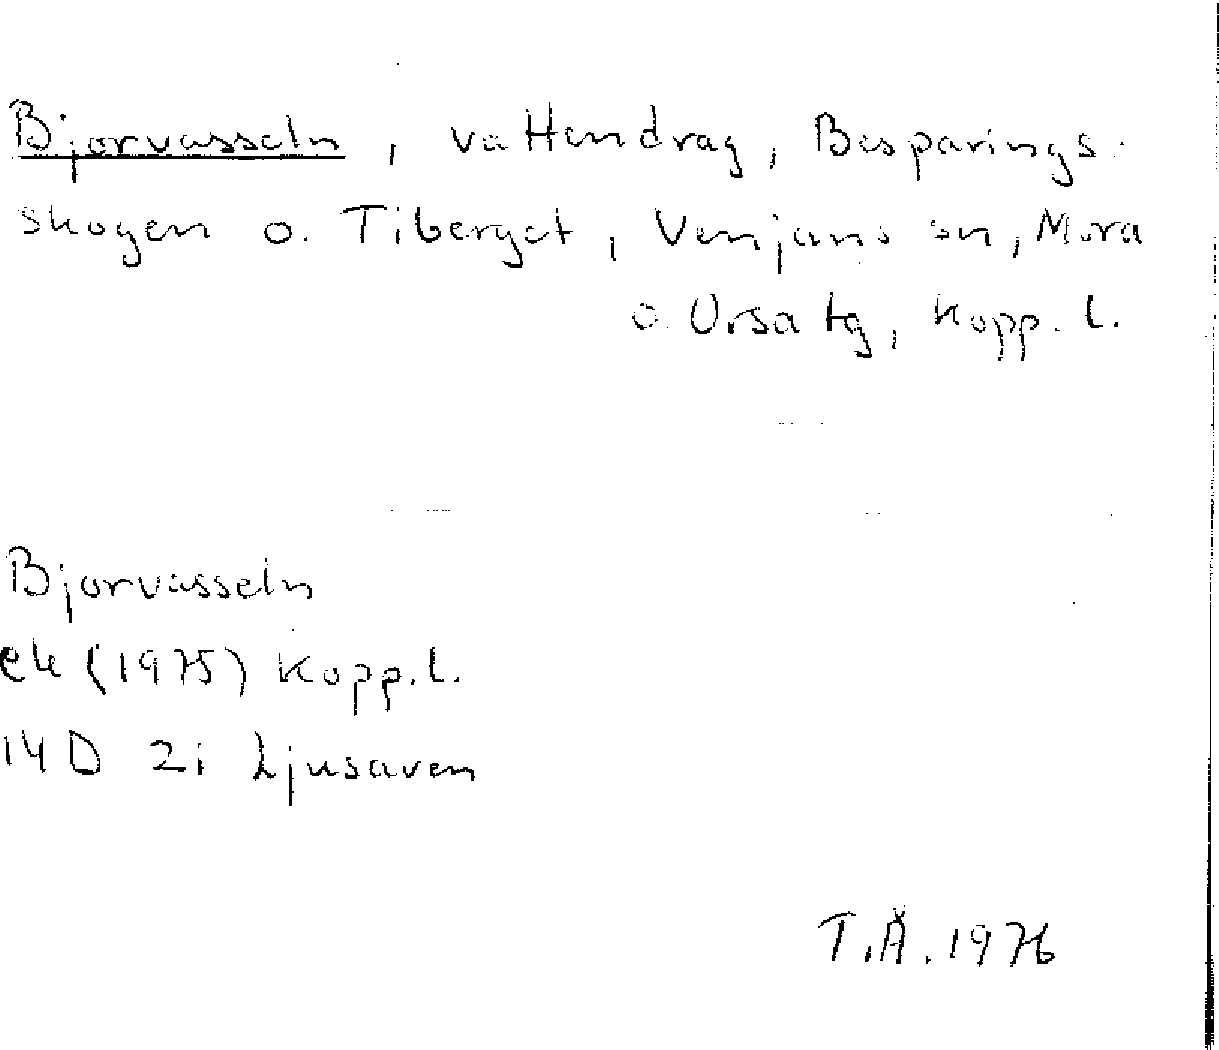 Bjorvasseln, vattendrag, Besparings-
skogen o. Tiberget, Venjans sn, Mora
o. Orsa tg, Kopp. l.
Bjorvasseln
ek (1975) Kopp. l.
14D 2i Ljusaven
T.Ä. 1976